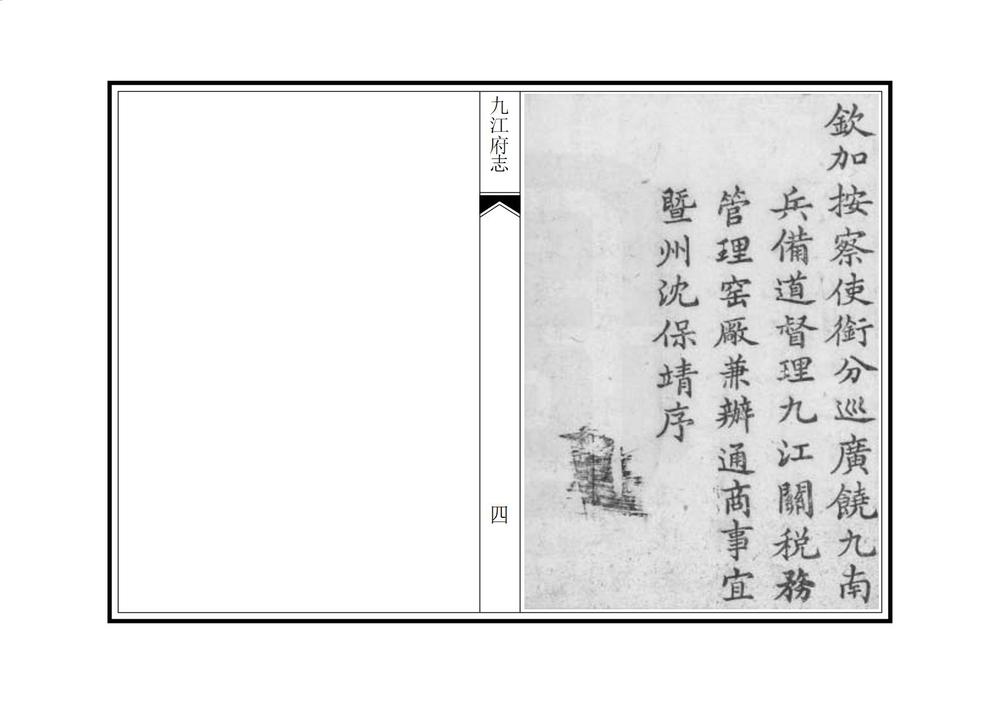 欽加按察使銜分巡廣饒九南
兵備道督理九江關税務
管理窑廠兼辦通商事宜
暨州沈保靖序
九江府志
四